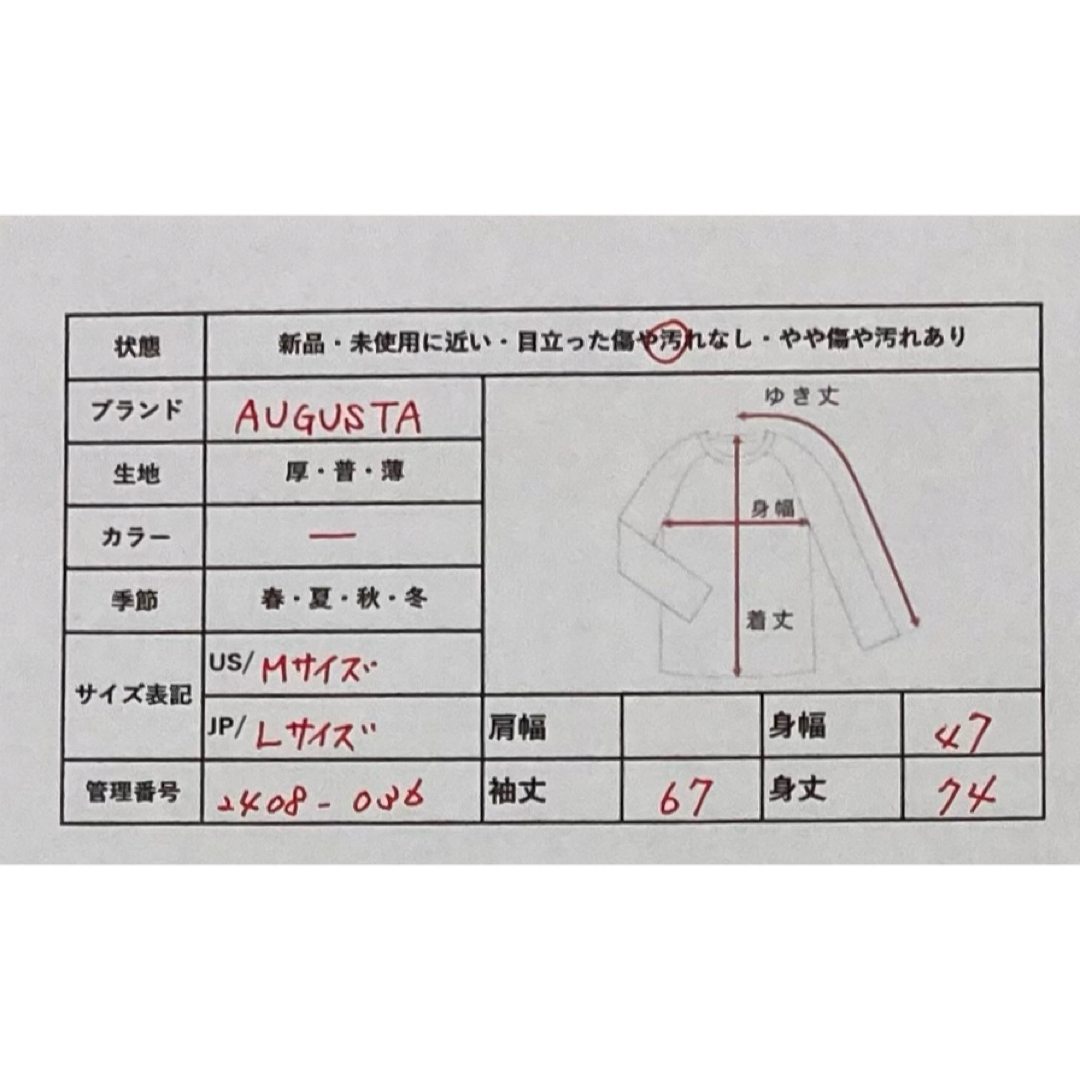 状態 新品・未使用に近い・目立った傷や汚れなし・やや傷や汚れあり
ブランド AUGUSTA
生地 厚・普・薄
カラー ー
季節 春・夏・秋・冬
サイズ表記 US/ Mサイズ
JP/ Lサイズ
管理番号 2408-036
ゆき丈
身幅
着丈
肩幅 身幅 47
袖丈 67 身丈 74